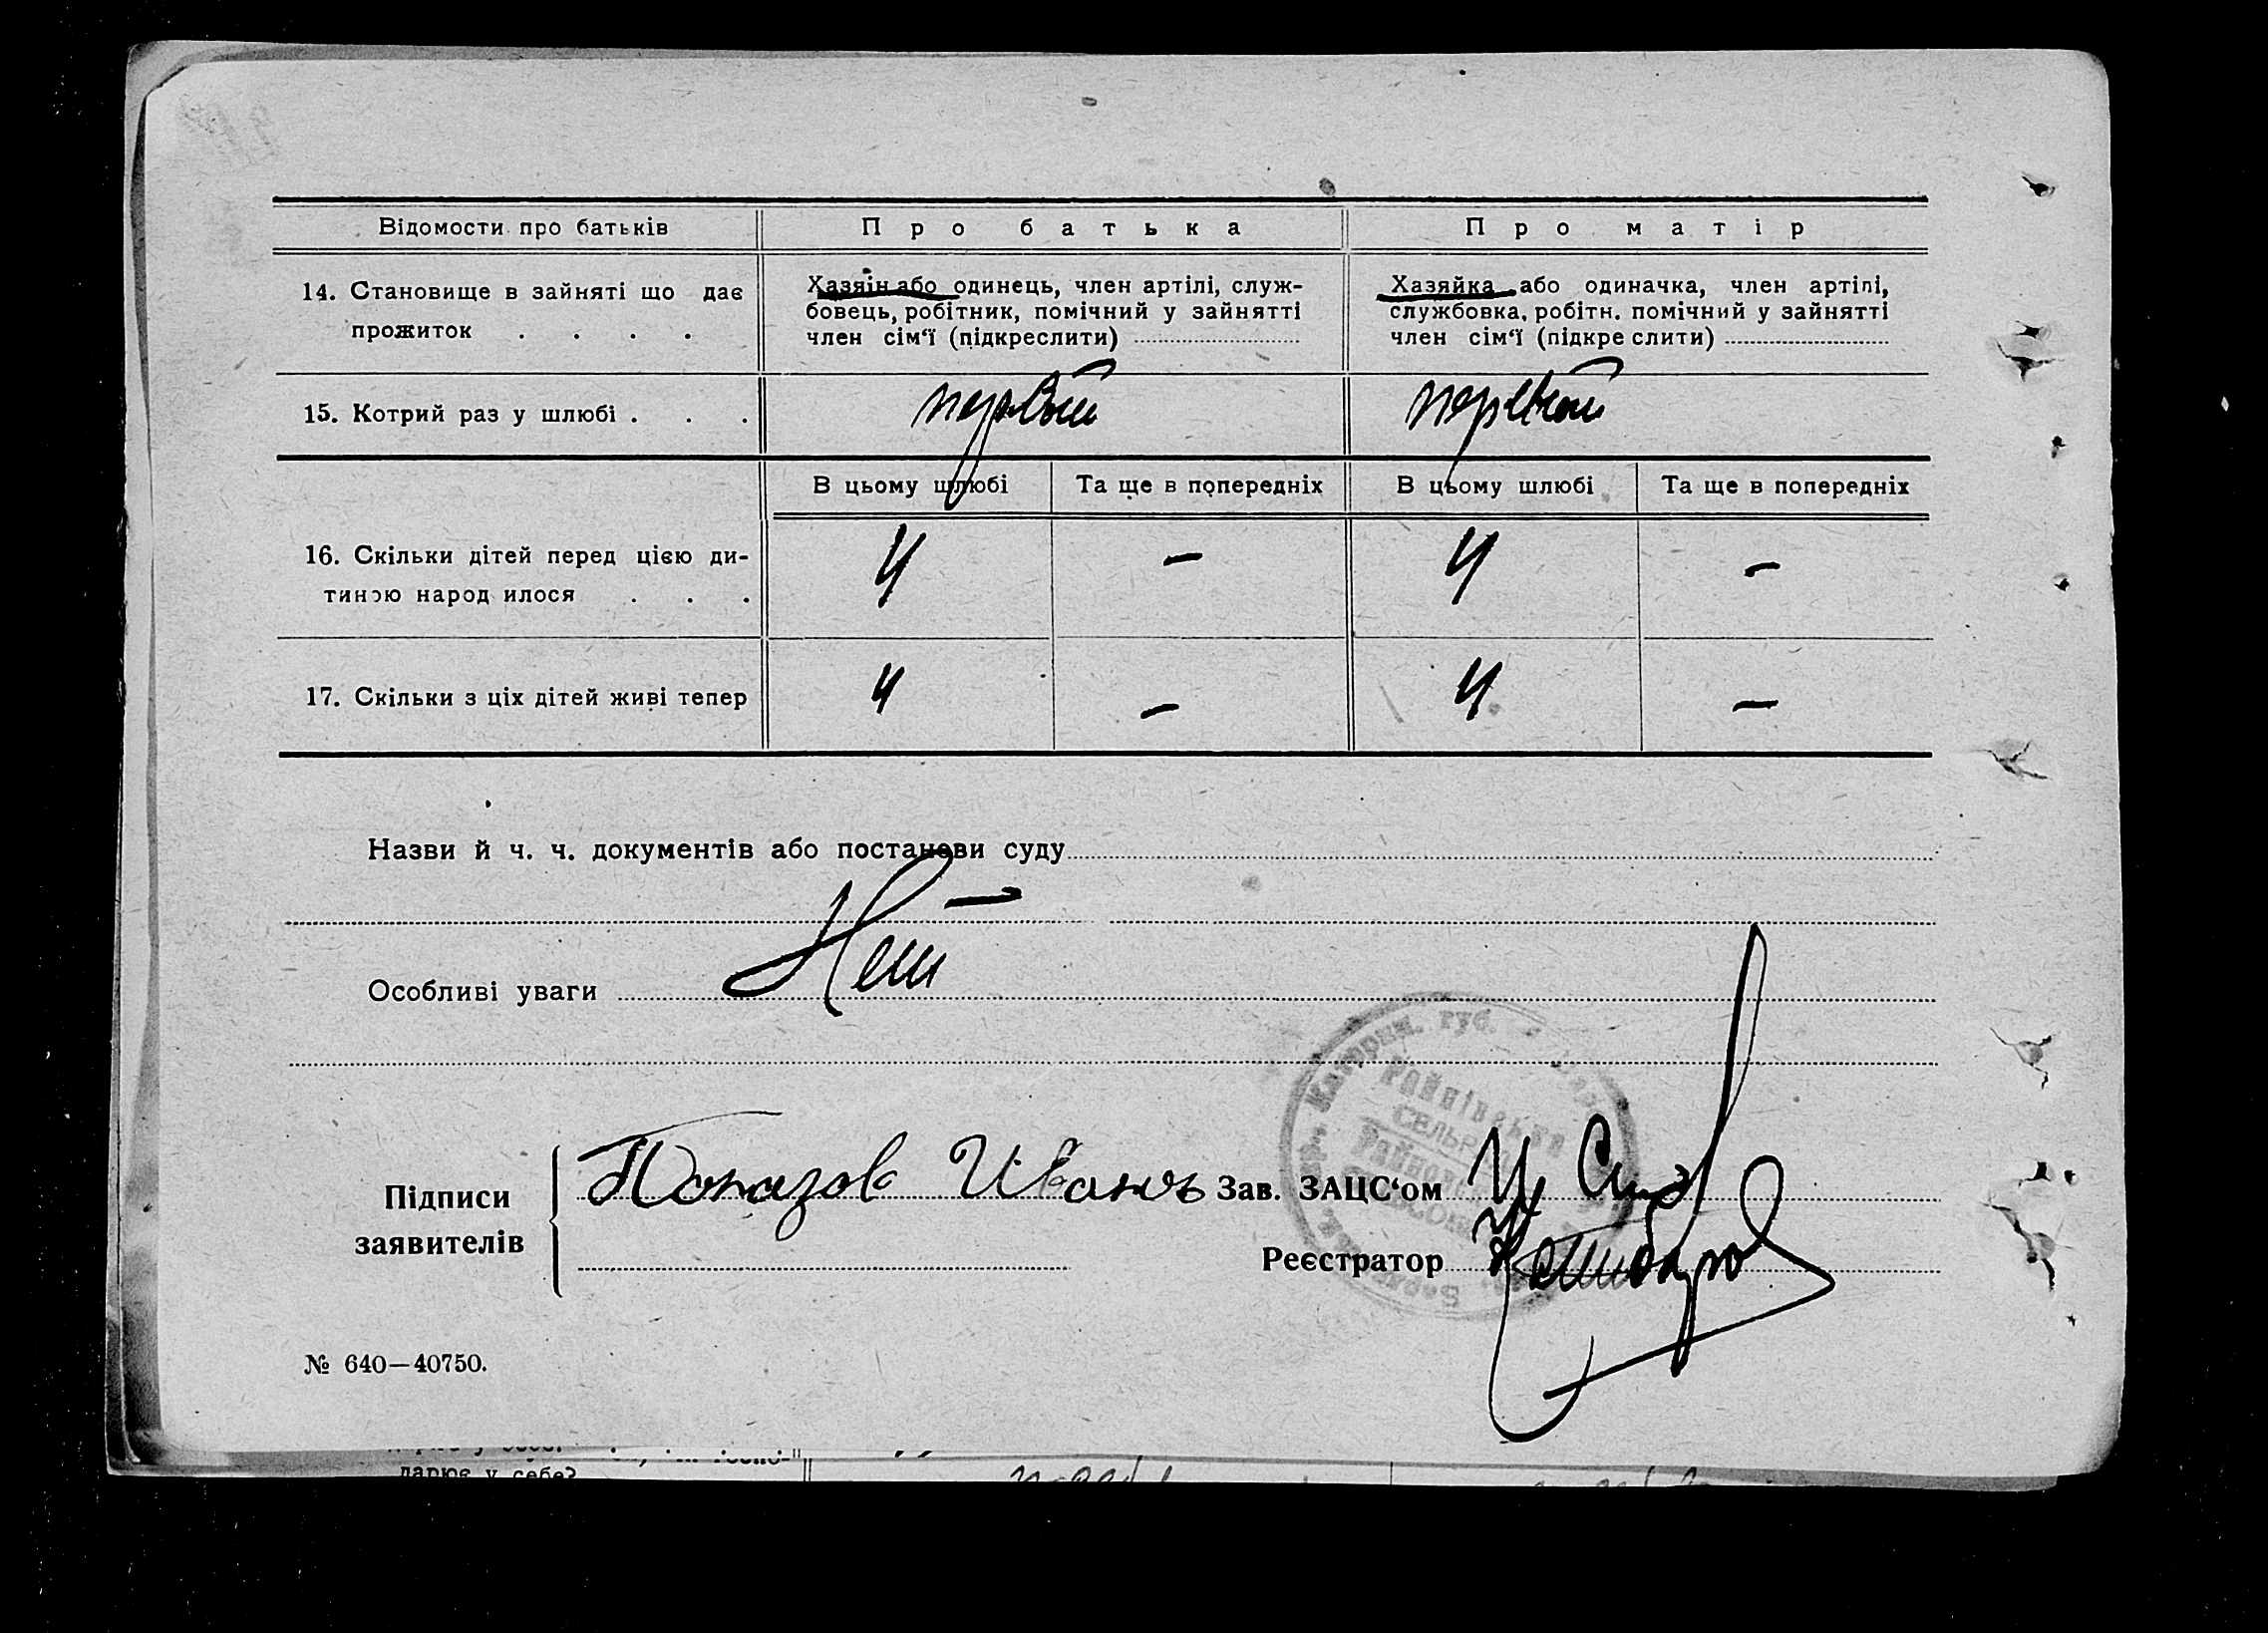 Відомости про батьків Про батька Про матір
14. Становище в зайняті що дає прожиток . . . .
Хазяїн або одинець, член артілі, служ-
бовець, робітник, помічний у зайнятті
член сім'ї (підкреслити)
Хазяйка або одиначка, член артілі,
службовка, робітн. помічний у зайнятті
член сім'ї (підкре слити)
15. Котрий раз у шлюбі . . . первый первый
В цьому шлюбі Та ще в попередніх В цьому шлюбі Та ще в попередніх
16. Скільки дітей перед цією ди-
тиною народ илося . . . 4 — 4 —
17. Скільки з ціх дітей живі тепер 4 — 4 —
Назви й ч. ч. документів або постанови суду
Нет
Особливі уваги
губ.
СЕЛЬР
Підписи
заявителів
Иванъ Зав. ЗАЦС'ом
Реєстратор
№ 640—40750.
дарює у себе?